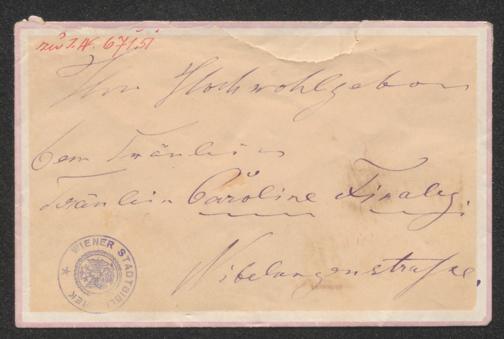 zu I.N. 67151
Ihro Hochwohlgeboren
dem Fräulein
Fräulein Caroline
Nibelungenstraße.
WIENER STADTBIBLIOTHEK